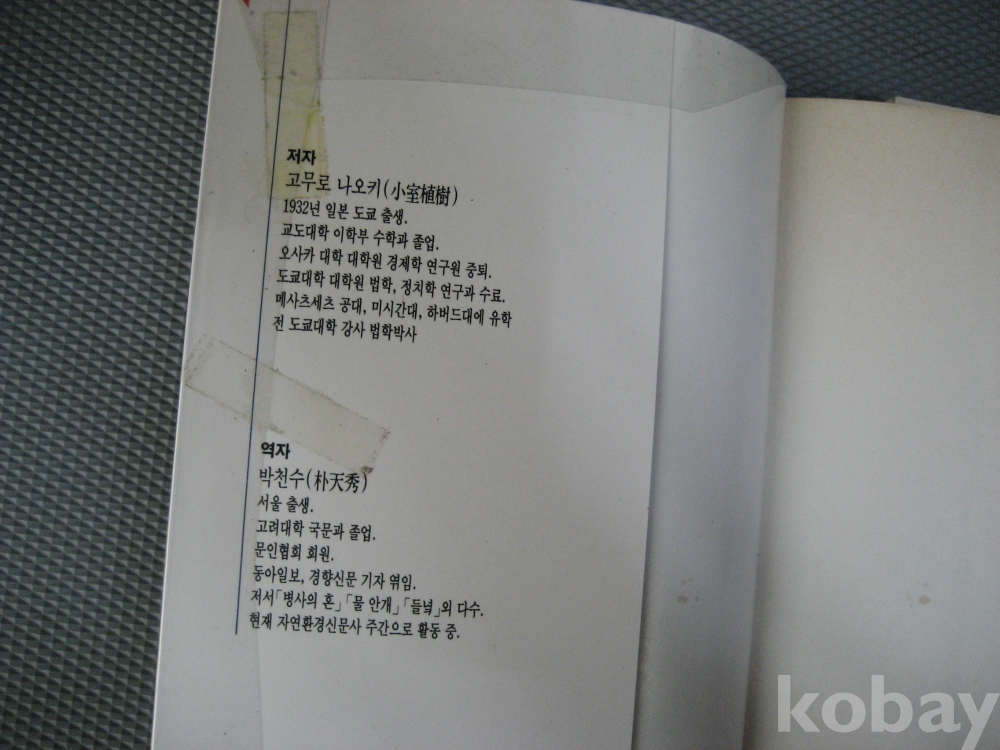 저자
고무로 나오키(小室植樹)
1932년 일본 도쿄 출생.
교도대학 이학부 수학과 졸업.
오사카 대학 대학원 경제학 연구원 중퇴.
도쿄대학 대학원 법학, 정치학 연구과 수료.
메사츠세츠 공대, 미시간대, 하버드대에 유학
전 도쿄대학 강사 법학박사
역자
박천수(朴天秀)
서울 출생.
고려대학 국문과 졸업.
문인협회 회원.
동아일보, 경향신문 기자 엮임.
저서「병사의 혼」「물 안개」「들녘」외 다수.
현재 자연환경신문사 주간으로 활동 중.
kobay